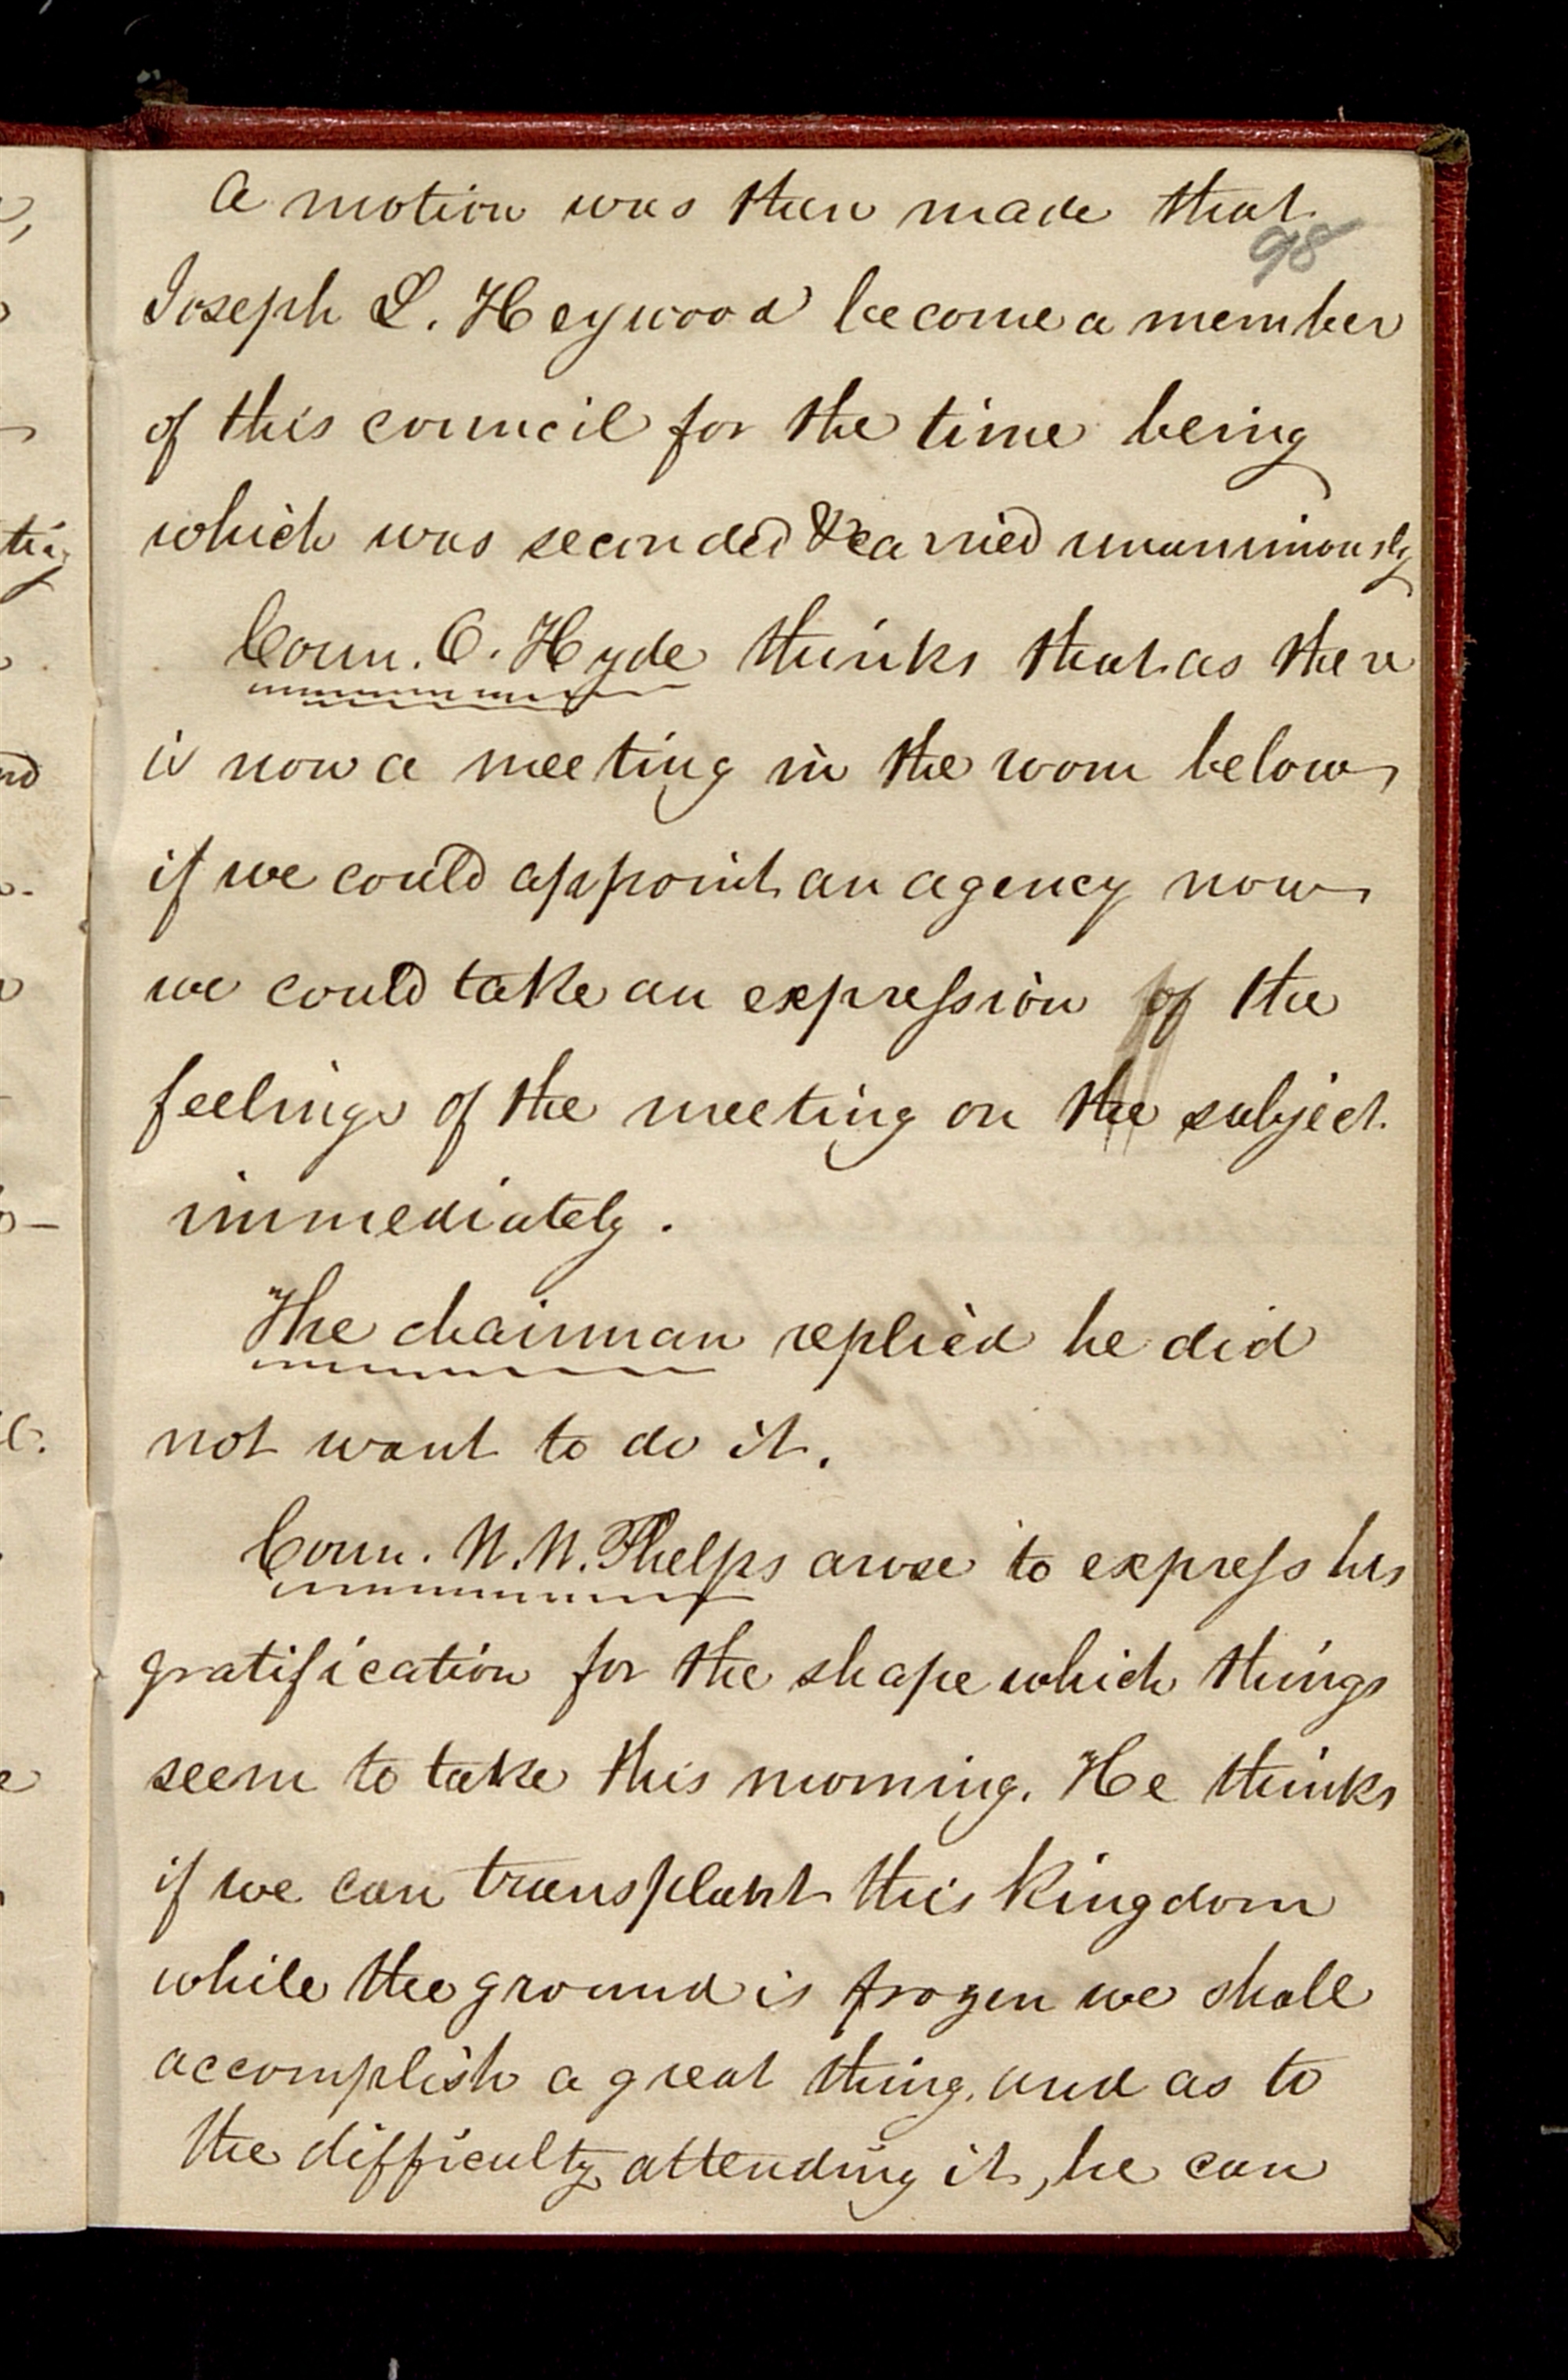 A motion was then made that
98
Joseph L. Heywood become a member
of this council for the time being
which was seconded & carried unanimously
Coun. O. Hyde thinks that as there
is now a meeting in the room below,
if we could appoint an agency now,
we could take an expression of the
feelings of the meeting on the subject
immediately.
The chairman replied he did
not want to do it.
Coun. W. W. Phelps arose to express his
gratification for the shape which things
seem to take this morning. He thinks
if we can transplant this Kingdom
while the ground is frozen we shall
accomplish a great thing, and as to
the difficulty attending it, he can